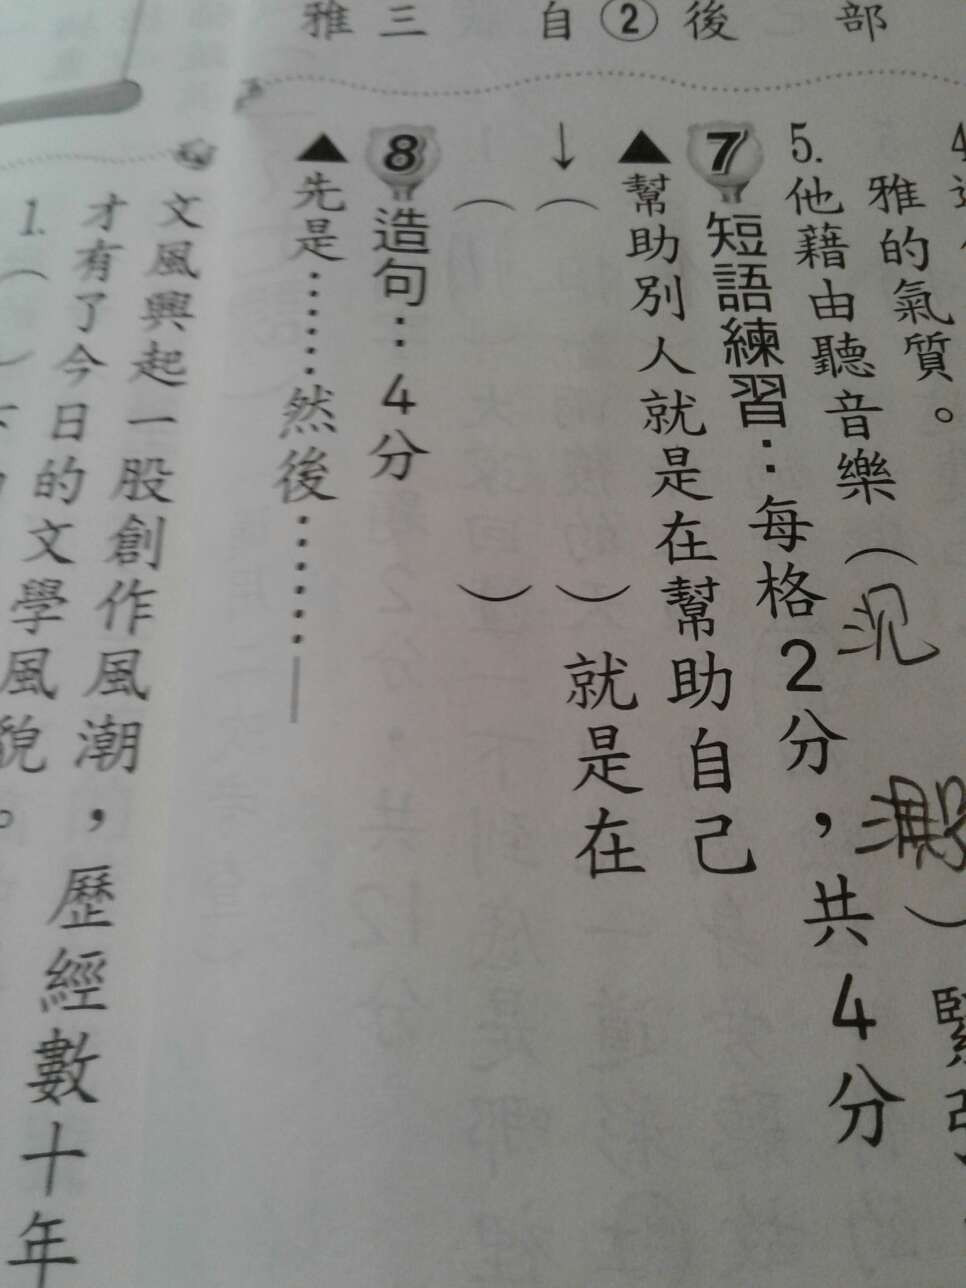 部
後
②
自
三
雅
雅的氣質。
5. 他藉由聽音樂（沉澱）緊
7 短語練習：每格2分，共4分
▲幫助別人就是在幫助自己
↓（　）就是在
（　）
8 造句：4分
▲先是⋯⋯然後⋯⋯
文風興起一股創作風潮，歷經數十年
才有了今日的文學風貌。
1.（